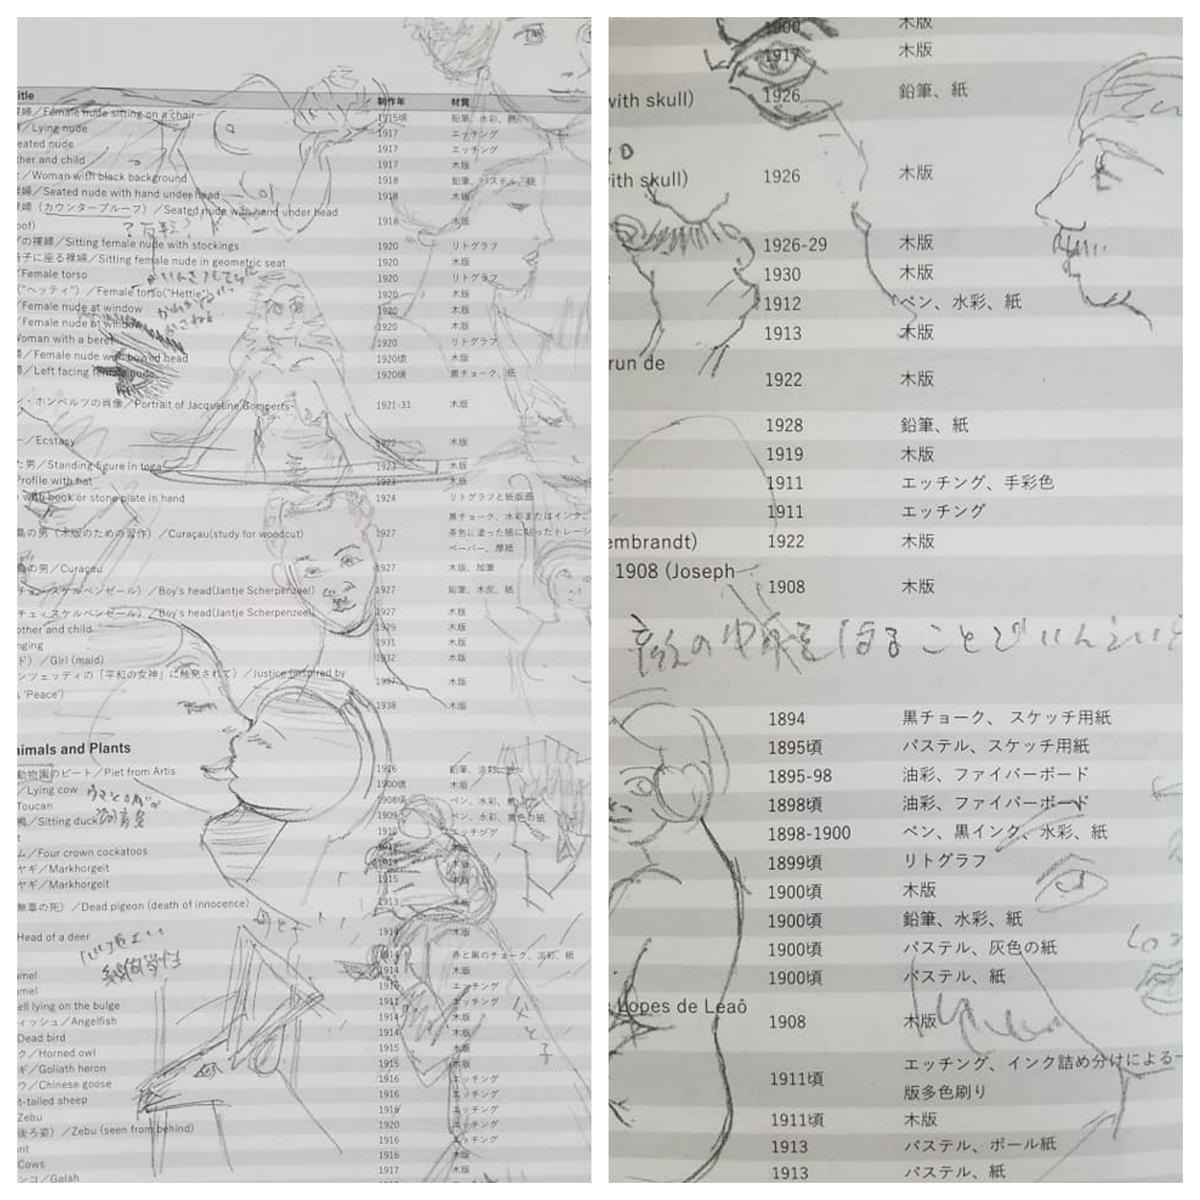 itle 制作年 材質
裸婦／Female nude sitting on a chair 1915頃 鉛筆、水彩、紙
／Lying nude 1917 エッチング
eated nude 1917 エッチング
ther and child 1917 木版
／Woman with black background 1918 鉛筆、パステル、紙
裸婦／Seated nude with hand under head 1918 木版
裸婦（カウンタープルーフ）／Seated nude with hand under head 1918 木版
oof)
の裸婦／Sitting female nude with stockings 1920 リトグラフ
椅子に座る裸婦／Sitting female nude in geometric seat 1920 木版
Female torso 1920 リトグラフ
("ヘッティ"）／Female torso("Hettie") 1920 木版
Female nude at window 1920 木版
Female nude at window 1920 木版
Woman with a beret 1920 リトグラフ
／Female nude with bowed head 1920頃 木版
／Left facing female nude 1920頃 黒チョーク、紙
ン・ホンペルツの肖像／Portrait of Jacqueline Gomperts- 1921-31 木版
ー／Ecstasy 1922 木版
た男／Standing figure in toga 1923 木版
Profile with hat 1923 木版
with book or stone plate in hand 1924 リトグラフと紙版画
島の男（木版のための習作）／Curaçau(study for woodcut) 1927 黒チョーク、水彩またはインク、
茶色に塗った紙に貼ったトレーシ
ペーパー、厚紙
島の男／Curaçau 1927 木版、加筆
チェ・スケルペンゼール）／Boy's head(Jantje Scherpenzeel) 1927 鉛筆、木炭、紙
チェ・スケルペンゼール）／Boy's head(Jantje Scherpenzeel) 1927 木版
other and child 1929 木版
nging 1931 木版
ド）／Girl (maid) 1932 木版
ンツェッティの「平和の女神」に触発されて）／Justice (inspired by 1937 木版
s 'Peace') 1938 木版
nimals and Plants
動物園のピート／Piet from Artis 1916 鉛筆、淡彩、紙
／Lying cow 1900頃 木版
Toucan 1908頃 ペン、水彩、紙
鴨／Sitting duck 1909 ペン、水彩、黄色の紙
t 1910 エッチング
ム／Four crown cockatoos
ヤギ／Markhorgeit 木版
ヤギ／Markhorgeit 1915 木版
無辜の死）／Dead pigeon (death of innocence) 1913 木版
Head of a deer 1914 木版
1914 赤と黒のチョーク、淡彩、紙
amel 1914 木版
amel 1916 エッチング
ell lying on the bulge 1911 エッチング
ィッシュ／Angelfish 1914 木版
Dead bird 1914 木版
ク／Horned owl 1915 木版
ギ／Goliath heron 1915 木版
ウ／Chinese goose 1916 エッチング
t-tailed sheep 1916 エッチング
Zebu 1916 エッチング
後ろ姿）／Zebu (seen from behind) 1920 エッチング
ant 1916 エッチング
1916 木版
Cows 1917 木版
ンコ／Galah 木版
父と子
1900 木版
1917 木版
with skull) 1926 鉛筆、紙
with skull) 1926 木版
1926-29 木版
1930 木版
1912 ペン、水彩、紙
1913 木版
run de
1922 木版
1928 鉛筆、紙
1919 木版
1911 エッチング、手彩色
1911 エッチング
embrandt) 1922 木版
1908 (Joseph
1908 木版
1894 黒チョーク、 スケッチ用紙
1895頃 パステル、スケッチ用紙
1895-98 油彩、ファイバーボード
1898頃 油彩、ファイバーボード
1898-1900 ペン、黒インク、水彩、紙
1899頃 リトグラフ
1900頃 木版
1900頃 鉛筆、水彩、紙
1900頃 パステル、灰色の紙
1900頃 パステル、紙
Lopes de Leaô
1908 木版
1911頃 エッチング、インク詰め分けによる一
版多色刷り
1911頃 木版
1913 パステル、ボール紙
1913 パステル、紙